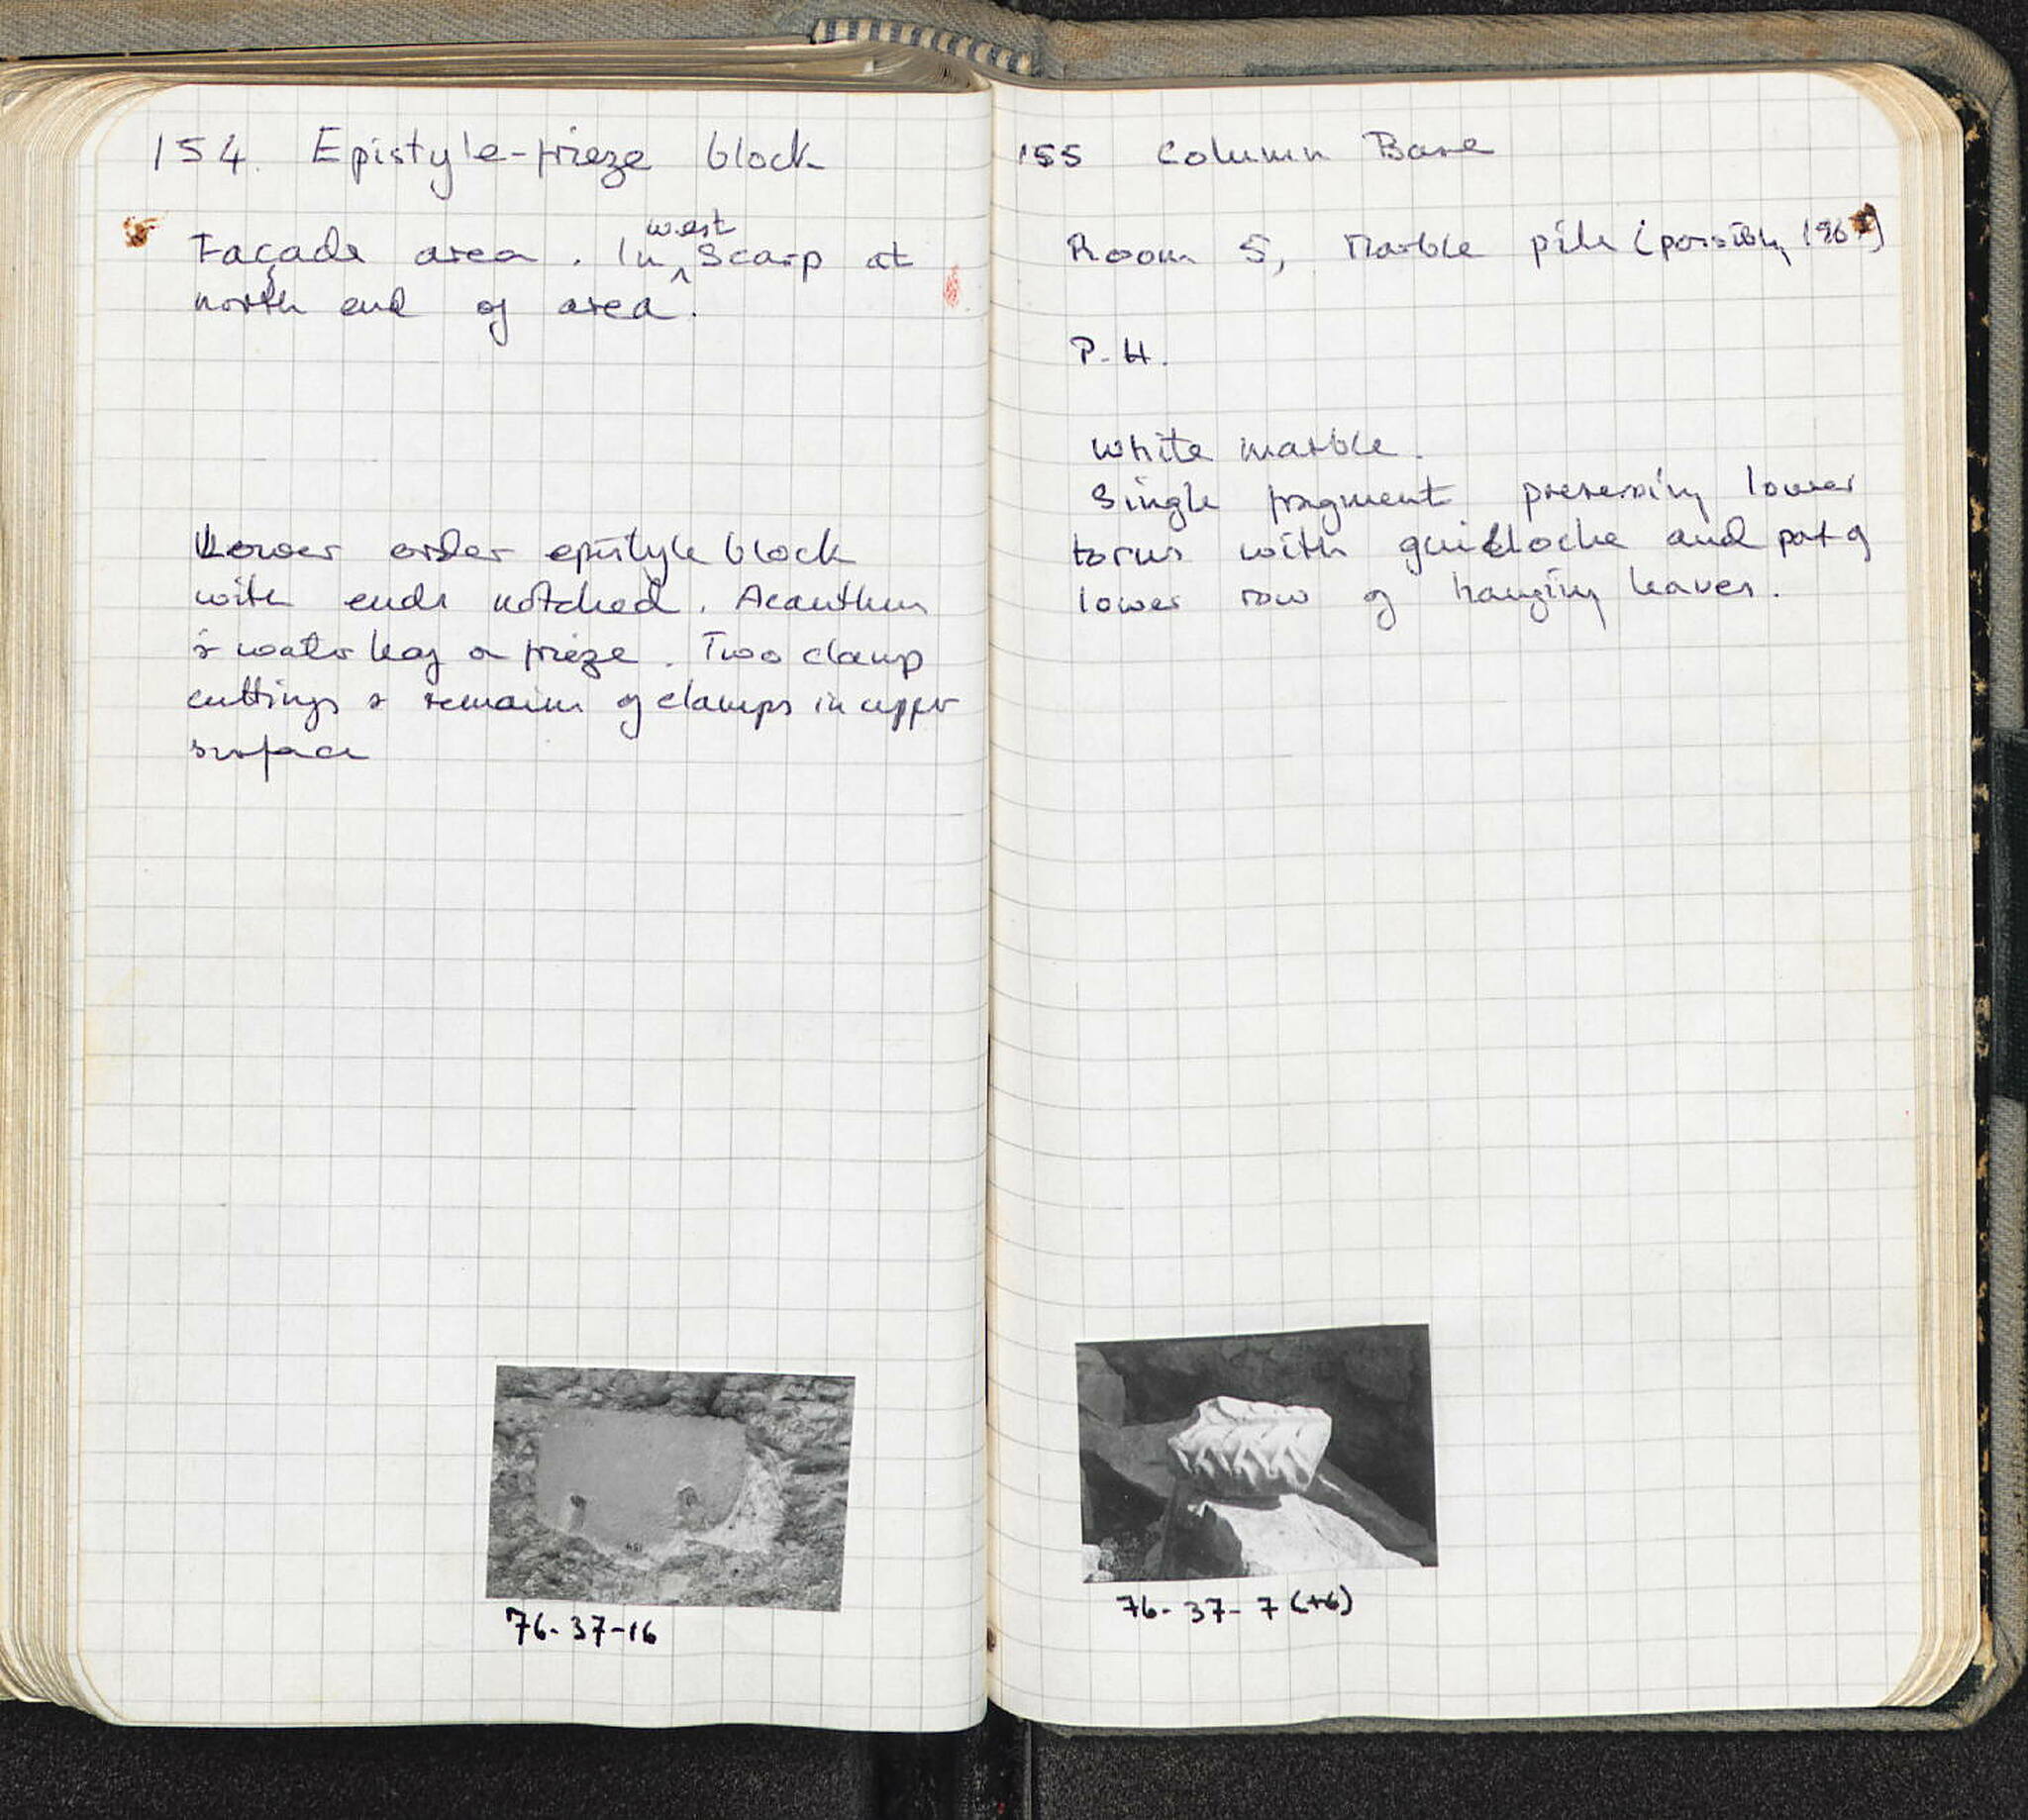 154. Epistyle-frieze block
Façade area. In west Scarp at
north end of area.
Lower order epistyle block
with ends notched. Acanthus
& water leaf on frieze. Two clamp
cuttings & remains of clamps in upper
surface
76-37-16
155 Column Base
Room 5, Marble pile (possibly
P.H.
White marble.
Single fragment preserving lower
torus with guilloche and part of
lower row of hanging leaves.
76-37-7 (+6)